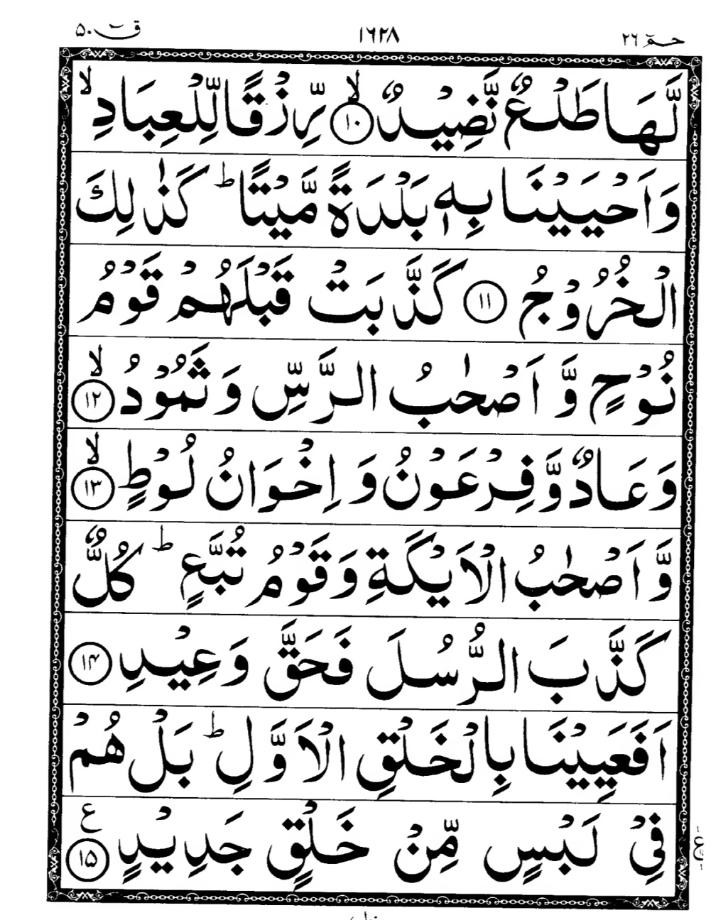 حٰمٓ ٢٦ ١٦٢٨ قٓ ٥٠
لَّهَا طَلْعٌ نَّضِيْدٌ ۙ ﴿١٠﴾ رِّزْقًا لِّلْعِبَادِ ۙ
وَاَحْيَيْنَا بِهٖ بَلْدَةً مَّيْتًا ؕ كَذٰلِكَ
الْخُرُوْجُ ﴿١١﴾ كَذَّبَتْ قَبْلَهُمْ قَوْمُ
نُوْحٍ وَّ اَصْحٰبُ الرَّسِّ وَ ثَمُوْدُ ۙ ﴿١٢﴾
وَ عَادٌ وَّ فِرْعَوْنُ وَ اِخْوَانُ لُوْطٍ ۙ ﴿١٣﴾
وَّ اَصْحٰبُ الْاَيْكَةِ وَ قَوْمُ تُبَّعٍ ؕ كُلٌّ
كَذَّبَ الرُّسُلَ فَحَقَّ وَعِيْدِ ﴿١٤﴾
اَفَعَيِيْنَا بِالْخَلْقِ الْاَوَّلِ ؕ بَلْ هُمْ
فِيْ لَبْسٍ مِّنْ خَلْقٍ جَدِيْدٍ ع ﴿١٥﴾